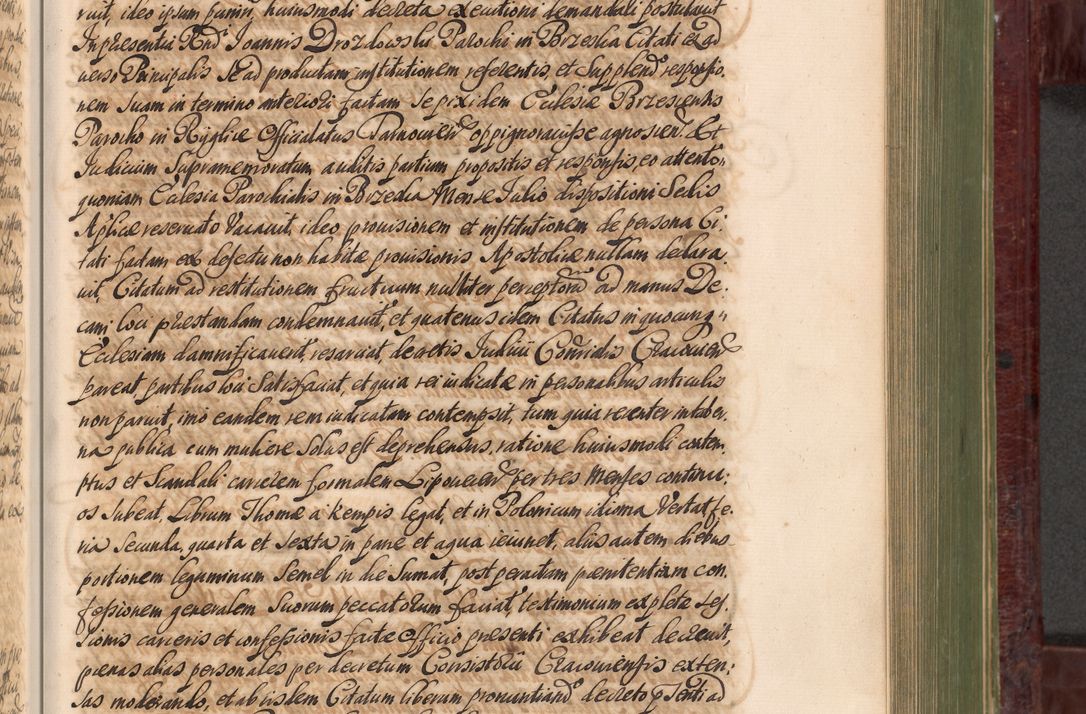 ruit, ideo ipsam puniri, huiusmodi decreta executioni demandari postulavit
In presentia Rnd Joannis Drozdowski Parochi in Brzeslia Citati ex ad
verso Principalis se ad productam institutionem referentis, et supplend responsio,
nem suam in termino anteriori factam se pixidem Ecclesiæ Brzescensis
Parocho in Ryglice Officialatus Tarnovien oppignoravisse agnoscen. Et
Judicium Supramemoratum auditis partium propositis et responsis, eo attento,
quoniam Ecclesia Parochialis in Brzeslia Mense Julio dispositioni Sedis
Aplicæ reservato Vacavit, ideo provisionem et institutionem de persona Ci,
tati factam ex defectu non habitæ provisionis Apostolicæ nullam declara,
vit, Citatum ad restitutionem fructuum nulliter perceptorum ad manus De,
cani loci præstandam condemnavit, et quatenus idem Citatus in quocunq
Ecclesiam damnificaverit, resarciat decretis Judicii Consrialis Cracovien
pareat, partibus loci Satisfaciat, et quia rei iudicatæ in personalibus articulis
non paruit, imo eandem rem iudicatam contempsit, tum quia recenter in taber,
na publica cum muliere Solus est deprehensus, ratione huiusmodi contem,
ptus et Scandali carcerem formalem Lipovecen per tres Menses continu,
os Subeat, Librum Thomæ a Kempis legat, et in Polonicum idioma Vertat, fe,
ria Secunda, quarta et Sexta in pane et aqua ieiunet, aliis autem diebus
portionem leguminum Semel in die Sumat, post peractam pænitentiam con,
fessionem generalem Suorum peccatorum faciat, testimonium expletæ ses,
sionis carceris et confessionis factæ Officio præsenti exhibeat decrevit,
pænas alias personales per decretum Consistorii Cracoviensis exten,
sas moderando, et ab iisdem Citatum liberum pronuntiand decreto Snti ad